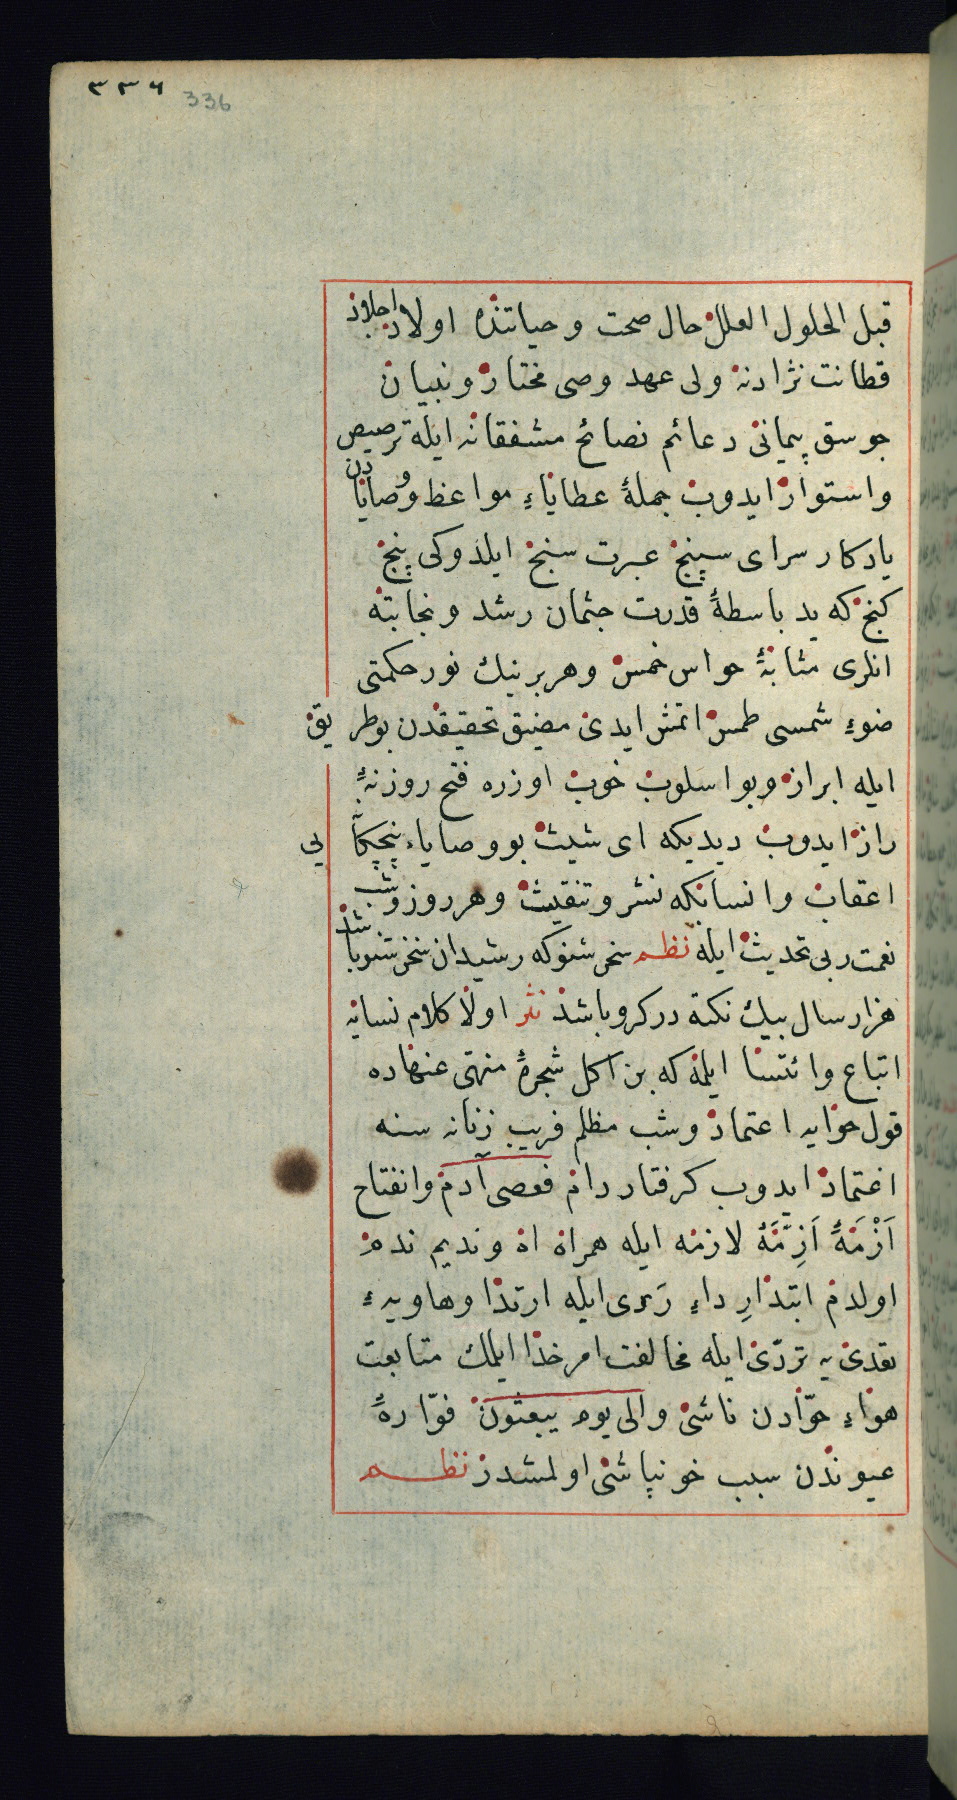 ٣٣٦ 336
قبل الحلول العلل حال صحت و حیاتنده اولاد احلاد
فطانت نژادنه ولی عهد وصی مختار و بنیان
جوسق پیمانی دعائم نصائح مشفقانه ایله ترصیص
واستوار ایدوب جملهٔ عطایاء مواعظ و وصایادن
یادکار سرای سپنج عبرت سنج ایلدوکی پنج
کنج که ید باسطهٔ قدرت جثمان رشد و نجابتنه
انلری مثابهٔ حواس خمس و هر برینك نور حکمتی
ضوءِ شمسی طمس اتمش ایدی مضیق تحقیقدن بو طریق
ایله ابراز و بو اسلوب خوب اوزره فتح روزنهٔ
راز ایدوب دیدیکه ای شیث بو وصایاء پنجکانه یی
اعقاب و انسابکه نشر و تنقیث و هر روز و شب
نعمت ربی تحدیث ایله نظم سخن شنو که رشیدان سخن شنو باشد
هزار سال بیك نکته در کرو باشد نثر اولا کلام نسایه
اتباع و ائتسا ایلمه که بن اکل شجرهٔ منهی عنهاده
قول حوایه اعتماد و شب مظلم فریب زنانه سنه
اغتماد ایدوب کرفتار دام فعصی آدم و انفتاح
اَزْمَةً اَزِمَّةُ لازمه ایله همراه اه و ندیم ندم
اولدم ابتدارِ داءِ رَدی ایله ارتدا و هاویهء
تعدی یه تردّی ایله مخالفت امر خدا ایلمك متابعت
هواءِ حوّادن ناشی و الی یوم یبعثون فوّارهٔ
عیوندن سبب خونپاشی اولمشدر نظم